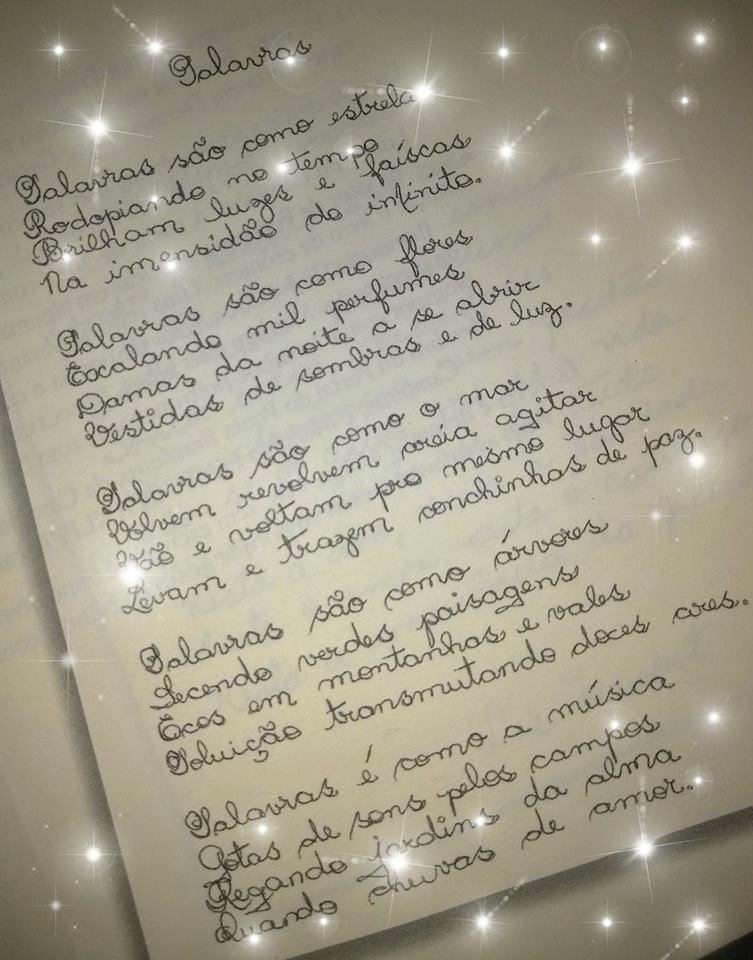 Palavras
Palavras são como estrela
Rodopiando no tempo
Brilham luzes e faíscas
Na imensidão do infinito.
Palavras são como flores
Exalando mil perfumes
Damas da noite a se abrir
Vestidas de sombras e de luz.
Palavras são como o mar
Volvem revolvem areia agitar
Vão e voltam pro mesmo lugar
Levam e trazem conchinhas de paz.
Palavras são como árvores
Tecendo verdes paisagens
Ecos em montanhas e vales
Poluição transmutando doces ares.
Palavras é como a música
Gotas de sons pelos campos
Regando jardins da alma
Quando chuvas de amor.